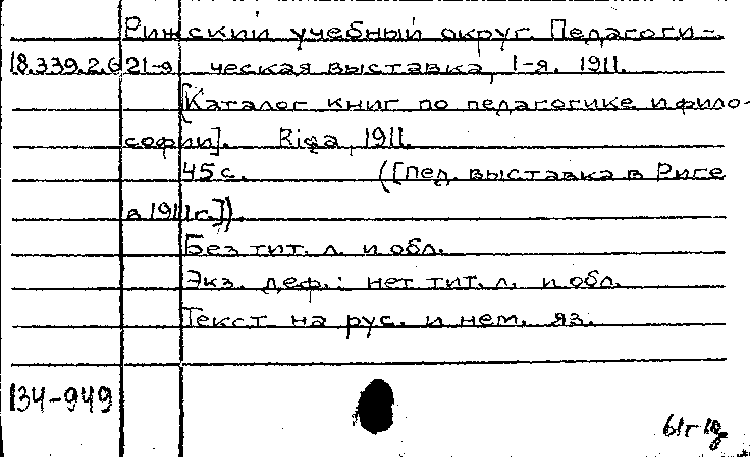 Рижский учебный округ. Педагоги-
18.339.2.6 21-я ческая выставка, 1-я. 1911.
[Каталог книг по педагогике и фило-
софии]. Riga, 1911.
45 с. ([Пед. выставка в Риге
в 1911 г.]).
Без тит. л. и обл.
Экз. деф.: нет тит. л. и обл.
Текст на рус. и нем. яз.
134-949